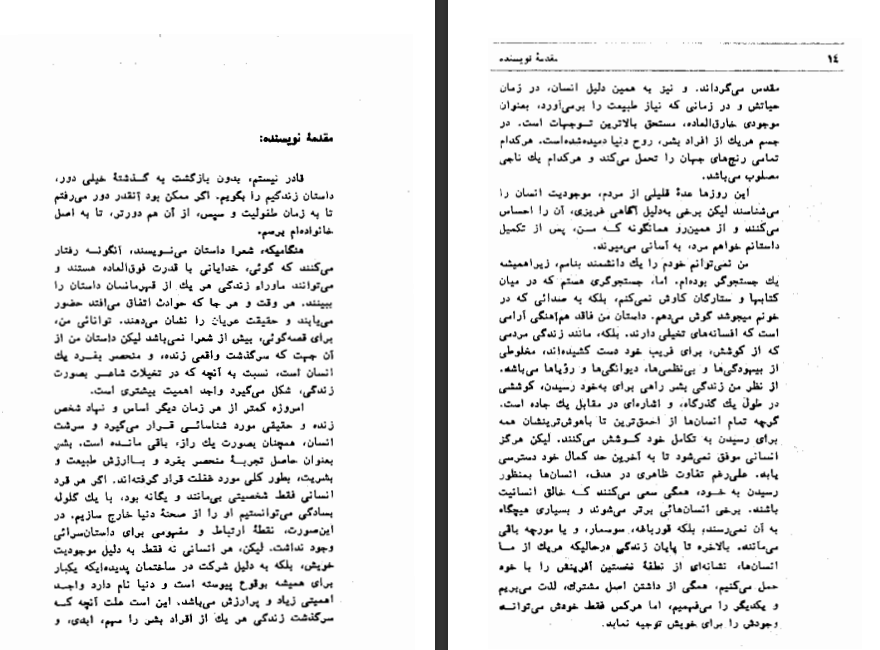 مقدمهٔ نویسنده:
قادر نیستم، بدون بازگشت به گذشتهٔ خیلی دور،
داستان زندگیم را بگویم. اگر ممکن بود آنقدر دور می‌رفتم
تا به زمان طفولیت و سپس، از آن هم دورتر، تا به اصل
خانواده‌ام برسم.
هنگامیکه، شعرا داستان می‌نویسند، آنگونه رفتار
می‌کنند که گوئی، خدایانی با قدرت فوق‌العاده هستند و
می‌توانند ماوراء زندگی هر یك از قهرمانسان داستان را
ببینند. هر وقت و هر جا که حوادث اتفاق می‌افتد حضور
می‌یابند و حقیقت عریان را نشان می‌دهند. توانائی من،
برای قصه‌گوئی، بیش از شعرا نمی‌باشد لیکن داستان من از
آن جهت که سرگذشت واقعی زنده، و منحصر بفرد یك
انسان است، نسبت به آنچه که در تخیلات شاعر بصورت
زندگی، شکل می‌گیرد واجد اهمیت بیشتری است.
امروزه کمتر از هر زمان دیگر اساس و نهاد شخص
زنده و حقیقی مورد شناسائی قرار می‌گیرد و سرشت
انسان، همچنان بصورت یك راز، باقی مانده است. بشر
بعنوان حاصل تجربهٔ منحصر بفرد و باارزش طبیعت و
بشریت، بطور کلی مورد غفلت قرار گرفته‌اند. اگر هر فرد
انسانی فقط شخصیتی بی‌مانند و یگانه بود، با یك گلوله
بسادگی می‌توانستیم او را از صحنهٔ دنیا خارج سازیم. در
این‌صورت، نقطهٔ ارتباط و مفهومی برای داستان‌سرائی
وجود نداشت. لیکن، هر انسانی نه فقط به دلیل موجودیت
خویش، بلکه به دلیل شرکت در ساختمان پدیده‌ایکه یکبار
برای همیشه بوقوع پیوسته است و دنیا نام دارد واجد
اهمیتی زیاد و پرارزش می‌باشد. این است علت آنچه که
سرگذشت زندگی هر یك از افراد بشر را مهم، ابدی، و
۱٤ مقدمهٔ نویسنده
مقدس می‌گرداند. و نیز به همین دلیل انسان، در زمان
حیاتش و در زمانی که نیاز طبیعت را برمی‌آورد، بعنوان
موجودی خارق‌العاده، مستحق بالاترین توجهات است. در
جسم هریك از افراد بشر، روح دنیا دمیده‌شده‌است. هرکدام
تمامی رنج‌های جهان را تحمل می‌کند و هرکدام یك ناجی
مصلوب می‌باشد.
این روزها عدهٔ قلیلی از مردم، موجودیت انسان را
می‌شناسند لیکن برخی به‌دلیل آگاهی غریزی، آن را احساس
می‌کنند و از همین‌رو همانگونه که من، پس از تکمیل
داستانم خواهم مرد، به آسانی می‌میرند.
من نمی‌توانم خودم را یك دانشمند بنامم، زیراهمیشه
یك جستجوگر بوده‌ام. اما، جستجوگری هستم که در میان
کتابها و ستارگان کاوش نمی‌کنم، بلکه به صدائی که در
خونم میجوشد گوش می‌دهم. داستان من فاقد هم‌آهنگی آرامی
است که افسانه‌های تخیلی دارند. بلکه، مانند زندگی مردمی
که از کوشش، برای فریب خود دست کشیده‌اند، مخلوطی
از بیهودگی‌ها و بی‌نظمی‌ها، دیوانگی‌ها و رؤیاها می‌باشد.
از نظر من زندگی بشر راهی برای به‌خود رسیدن، کوششی
در طول یك گذرگاه، و اشاره‌ای در مقابل یك جاده است.
گرچه تمام انسان‌ها از احمق‌ترین تا باهوش‌ترینشان همه
برای رسیدن به تکامل خود کوشش می‌کنند. لیکن هرگز
انسانی موفق نمی‌شود تا به آخرین حد کمال خود دسترسی
یابد. علی‌رغم تفاوت ظاهری در هدف، انسان‌ها بمنظور
رسیدن به خود، همگی سعی می‌کنند که خالق انسانیت
باشند. برخی انسان‌هائی برتر می‌شوند و بسیاری هیچگاه
به آن نمی‌رسند، بلکه قورباغه، سوسمار، و یا مورچه باقی
می‌مانند. بالاخره تا پایان زندگی درحالیکه هریك از ما
انسان‌ها، نشانه‌ای از نطفهٔ نخستین آفرینش را با خود
حمل می‌کنیم، همگی از داشتن اصل مشترك، لذت می‌بریم
و یکدیگر را می‌فهمیم، اما هرکس فقط خودش می‌تواند
وجودش را برای خویش توجیه نماید.